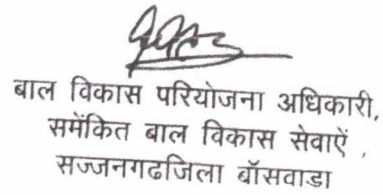 बाल विकास परियोजना अधिकारी,
समेंकित बाल विकास सेवाऐं ,
सज्जनगढजिला बॉसवाडा